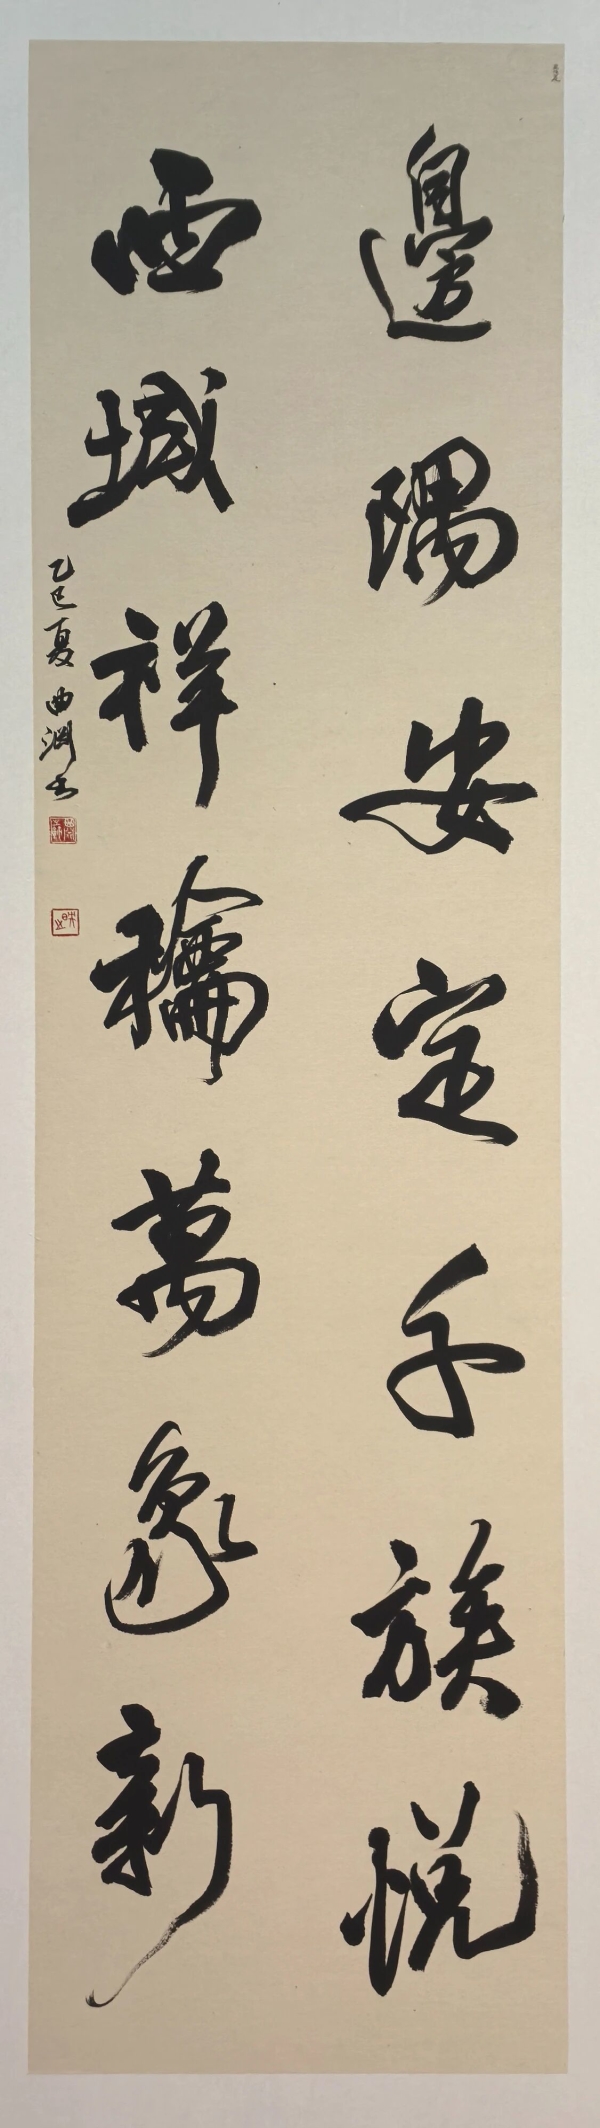 邊隅安定千族悦
西域祥禴萬象新
乙巳夏曲淵書